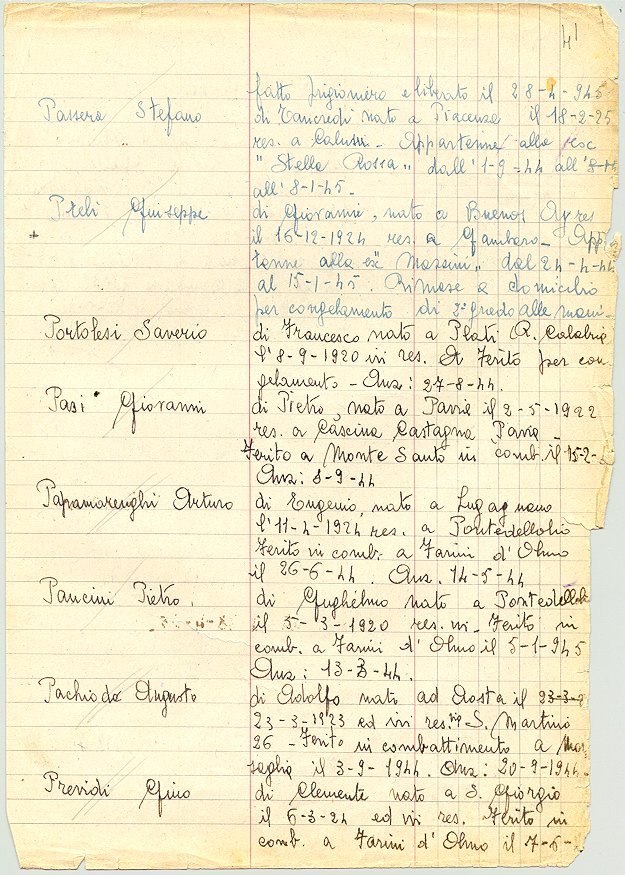 41
fatto prigioniero e liberato il 28-4-945
Passera Stefano di Tancredi nato a Piacenza il 18-2-25
res. a Appartenne alla
"Stella Rossa" dall'1-9-44 all'8-1-
all'8-1-45-
Giuseppe di Giovanni, nato a Buenos Ayres
il 16-12-1924 res. a Gambaro- App
tenne alla ex "Mazzini" dal 24-4-44
al 15-1-45. Rimase a domicilio
per congelamento di 2° grado alle mani-
Portolesi Saverio di Francesco nato a Plati R. Calabria
l'8-9-1920 ivi res. Ferito per con
gelamento - Anz: 27-8-44.
Pasi Giovanni di Pietro, nato a Pavia il 2-5-1922
res. a Cascina Castagna Pavia -
Ferito a Monte Santo in comb. il 15-2-
Anz: 8-9-44
Papamarenghi Arturo di Eugenio, nato a Lugagnano
l'11-4-1924 res. a Pontedellolio
Ferito in comb. a Farini d'Olmo
il 26-6-44. Anz. 14-5-44
Pancini Pietro. di Gughelmo nato a Pontedellolio
il 5-3-1920 res. ivi - Ferito in
comb. a Farini d'Olmo il 5-1-945
Anz: 13-3-44.
Pachioda Augusto di Adolfo nato ad Aosta il 23-3-9
23-3-1923 ed ivi res. S. Martino
26 - Ferito in combattimento a Mar
saglia il 3-9-1944. Anz: 20-9-1944.
Previdi Gino di Clemente nato a S. Giorgio
il 6-3-24 ed ivi res. Ferito in
comb. a Farini d'Olmo il 7-6-